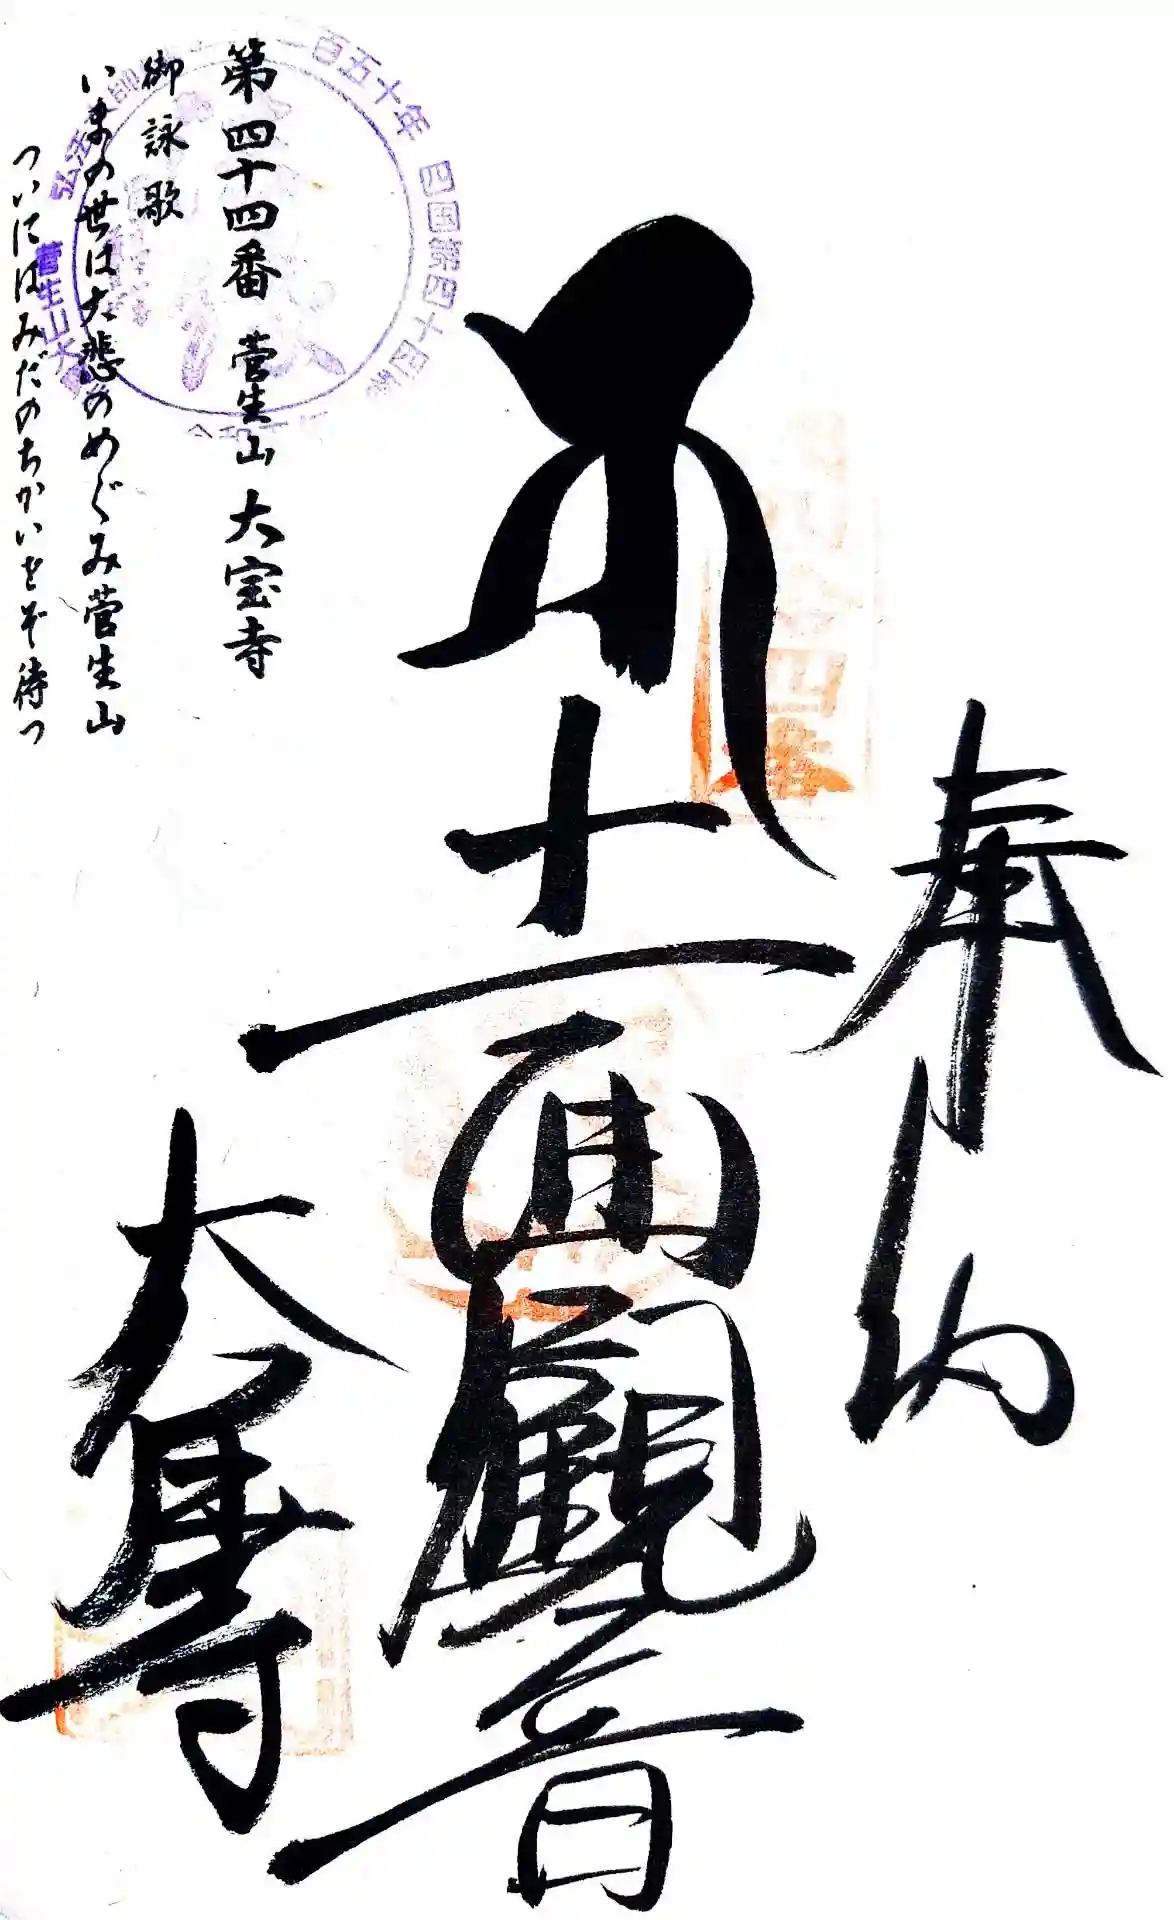 奉納
十一面觀音
大寶寺
第四十四番 菅生山 大宝寺
御詠歌
いまの世は大悲のめぐみ菅生山
ついにはみだのちかいをぞ待つ
百五十年 四国第四十四番
弘法
菅生山大